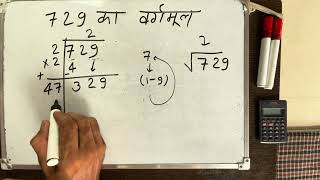 729 का वर्गमूल
2
2 729
× 2 4 ↓
+
47 329
7
↓
(1-9)
2
√729